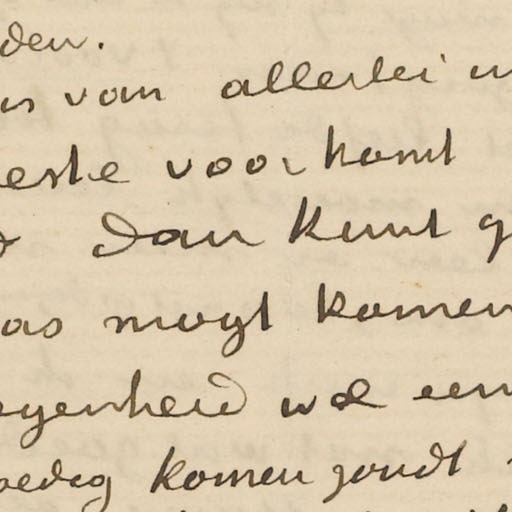 den.
us van allerlei
este voorkomt
dan kunt g
as mogt komen
egenheid wel een
oedig komen zoudt